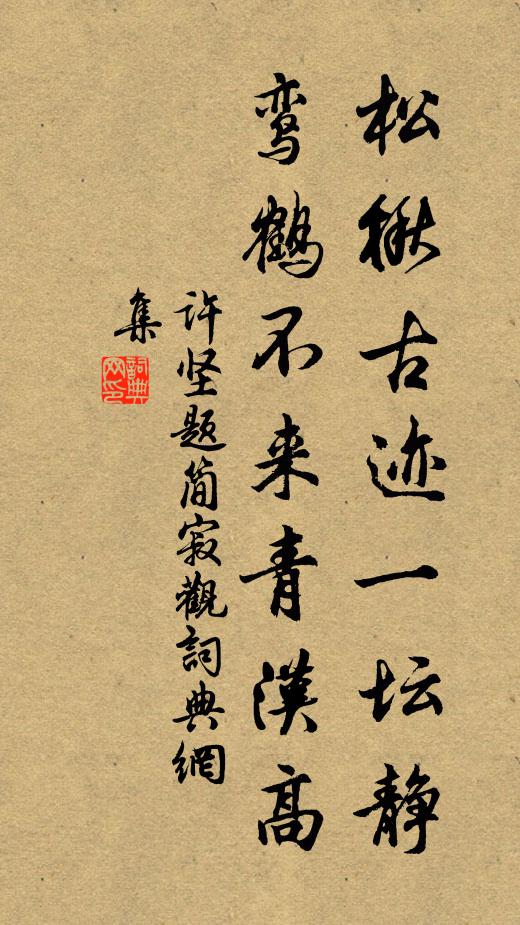 松楸古迹一坛静
鸾鹤不来青漢高
许坚题简寂觀詞典網
集
詞典
网印